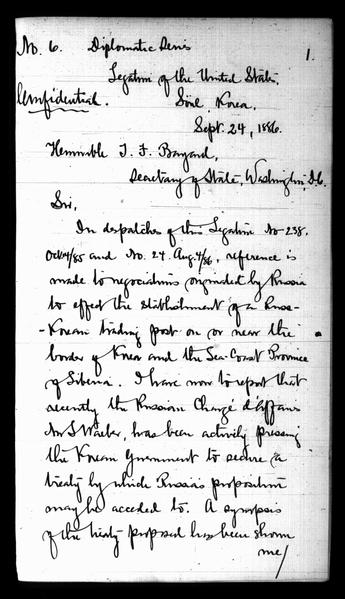 No. 6. Diplomatic Series
1.
Legation of the United States,
Confidential.
Söul, Korea,
Sept. 24, 1886.
Honorable T. F. Bayard,
Secretary of State, Washington, D.C.
Sir,
In despatches of this Legation No 238.
Oct 4/85 and No. 24. Aug. 4/86, reference is
made to negociations by Russia
to effect the establishment of a Russo-
-Korean trading post on or near the
border of Korea and the Sea-Coast Province
of Siberia. I have now to report that
recently the Russian Chargé d'affaires
Mr Waeber, has been actively pressing
the Korean Government to secure a
treaty by which Russia's proposition
may be acceded to. A synopsis
of the treaty proposed has been shown
me/